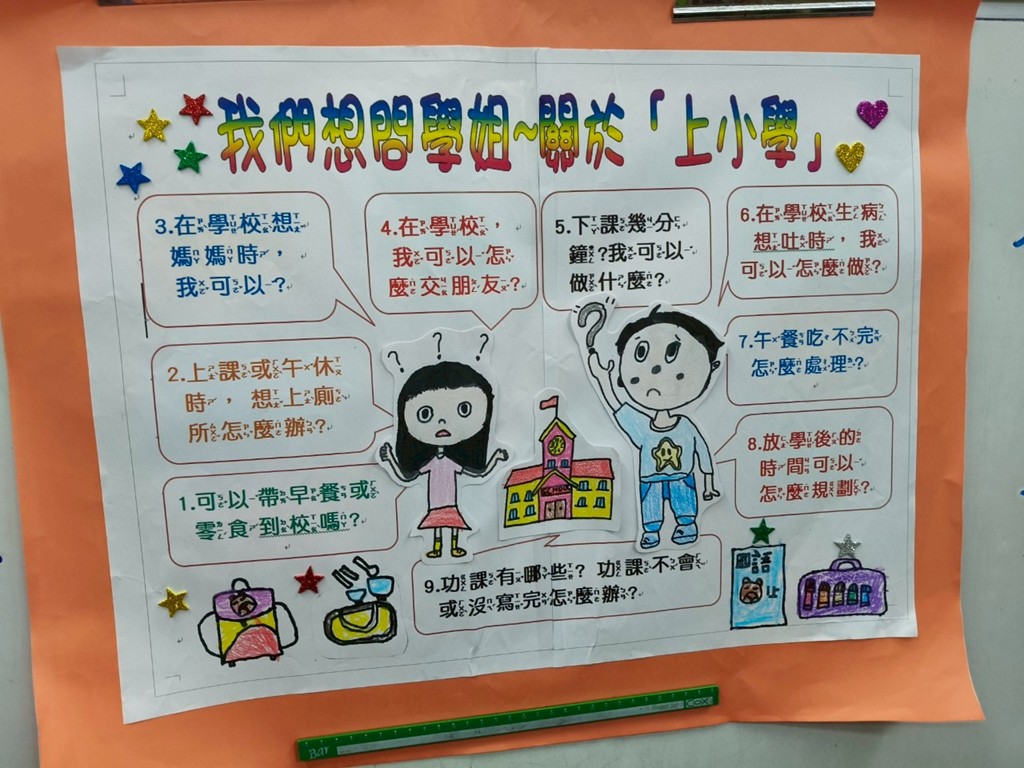 我們想問學姐~關於「上小學」
3.在學校想
媽媽時，
我可以？
4.在學校，
我可以怎
麼交朋友？
5.下課幾分
鐘？我可以
做什麼？
6.在學校生病
想吐時，我
可以怎麼做？
2.上課或午休
時，想上廁
所怎麼辦？
7.午餐吃不完
怎麼處理？
1.可以帶早餐或
零食到校嗎？
8.放學後的
時間可以
怎麼規劃？
9.功課有哪些？功課不會
或沒寫完怎麼辦？
國語